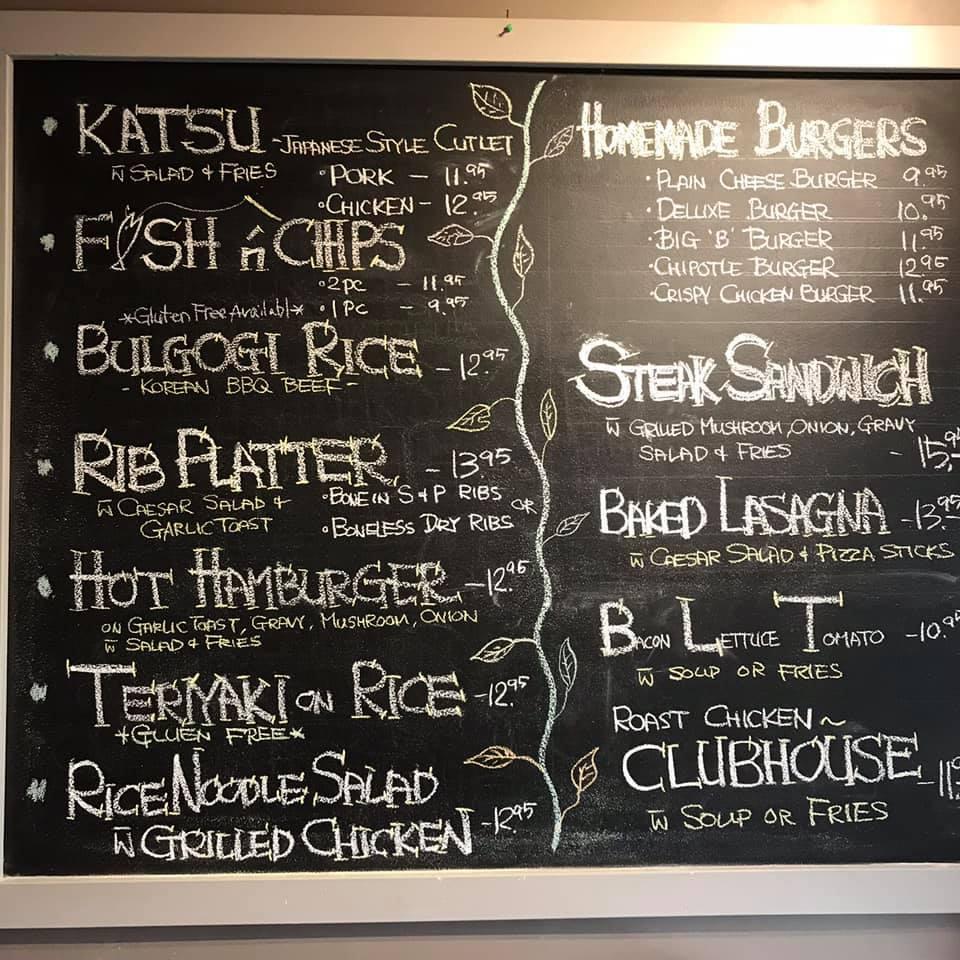 KATSU - JAPANESE STYLE CUTLET
w SALAD & FRIES
• PORK - 11.95
• CHICKEN - 12.95
FISH n CHIPS
• 2pc - 11.95
*Gluten Free Available* • 1pc - 9.95
BULGOGI RICE - 12.95
- KOREAN BBQ BEEF -
RIB PLATTER - 13.95
w CAESAR SALAD & GARLIC TOAST
• BONE IN S & P RIBS OR
• BONELESS DRY RIBS
HOT HAMBURGER - 12.95
ON GARLIC TOAST, GRAVY, MUSHROOM, ONION
w SALAD & FRIES
TERIYAKI ON RICE - 12.95
*GLUEN FREE*
RICE NOODLE SALAD
w GRILLED CHICKEN - 12.95
HOMEMADE BURGERS
• PLAIN CHEESE BURGER 9.95
• DELUXE BURGER 10.95
• BIG 'B' BURGER 11.95
• CHIPOTLE BURGER 12.95
• CRISPY CHICKEN BURGER 11.95
STEAK SANDWICH
w GRILLED MUSHROOM, ONION, GRAVY
SALAD & FRIES - 15.
BAKED LASAGNA - 13.95
w CAESAR SALAD & PIZZA STICKS
BACON LETTUCE TOMATO - 10.95
w SOUP OR FRIES
ROAST CHICKEN ~
CLUBHOUSE - 11.
w SOUP OR FRIES